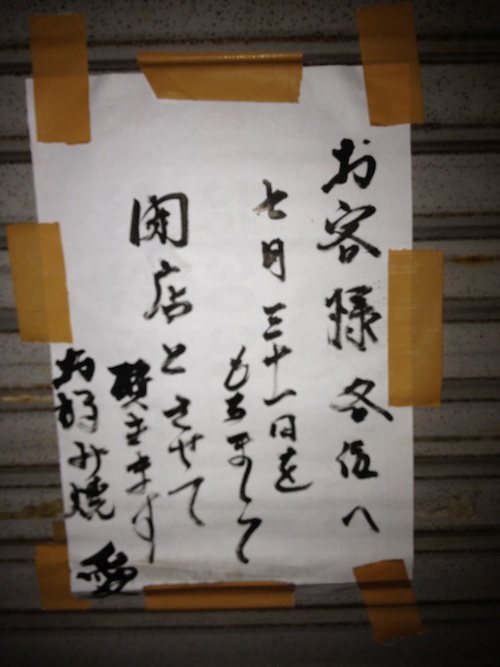 お客様各位へ
七月三十一日を
もちまして
閉店とさせて
頂きます
お好み焼
愛